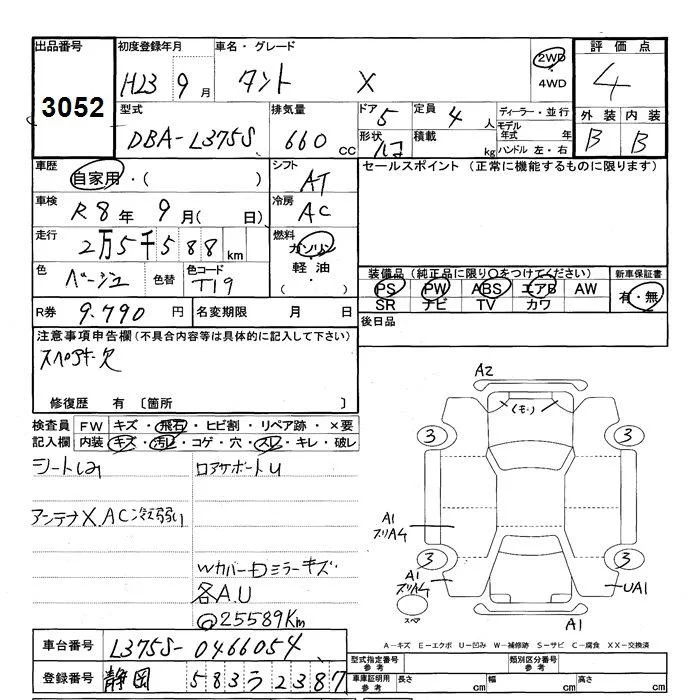 出品番号 初度登録年月 車名・グレード 2WD 評価点
3052 H23 9月 タント X 4WD 4
型式 排気量 ドア 5 定員 4人 ディーラー・並行 外装 内装
DBA-L375S 660cc 形状 積載 kg モデル年式 年 B B
ハンドル 左・右
車歴 自家用・( ) シフト AT セールスポイント (正常に機能するものに限ります)
車検 R8年 9月( 日) 冷房 AC
走行 2万5千588km 燃料 ガソリン
色 ベージュ 色替 色コード T19 軽油 ( ・ ) 装備品 (純正品に限り○をつけてください) 新車保証書
PS PW ABS エアB AW 有・無
SR ナビ TV カワ
R券 9.790円 名変期限 月 日 後日品
注意事項申告欄 (不具合内容等は具体的に記入して下さい)
スペアキー欠
修復歴 有 〔箇所 〕
検査員 FW キズ・飛石・ヒビ割・リペア跡・×要
記入欄 内装 キズ・汚レ・コゲ・穴・スレ・キレ・破レ
A2
(モリ)
3 3
シートしみ ロアサポートU
アンテナX.AC冷え弱い
A1
スリA4
3 3
Wカバー Dミラーキズ
A1
スリA4
各A.U UA1
@25589Km スペア A1
車台番号 L375S-0466054 A-キズ E-エクボ U-凹み W-補修跡 S-サビ C-腐食 XX-交換済
型式指定番号 参考 類別区分番号 参考
登録番号 静岡 583 う 2387 車庫証明用 参考 長さ cm 幅 cm 高さ cm